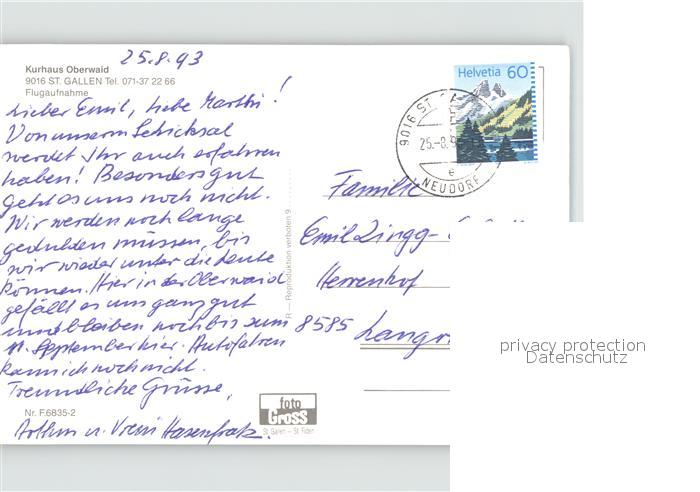 25.8.93
Kurhaus Oberwaid
9016 ST. GALLEN Tel. 071-37 22 66
Flugaufnahme
Lieber Emil, liebe Marthi!
Von unserm Schicksal
werdet Ihr auch erfahren
haben! Besonders gut
geht es uns noch nicht.
Wir werden noch lange
gedulden müssen, bis
wir wieder unter die Leute
können. Hier in der Oberwaid
gefällt es uns ganz gut
und bleiben noch bis zum
11. September hier. Autofahren
kann ich noch nicht.
Freundliche Grüsse,
Arthur u. Vreni Hasenfratz.
Nr. F.6835-2
R — Reproduktion verboten 9
foto
Gross
St. Gallen – St. Fiden
Helvetia 60
9016 ST.
25.-8.9
e
NEUDORF
Familie
Emil Zingg-
Herrenhof
8585 Langr
privacy protection
Datenschutz